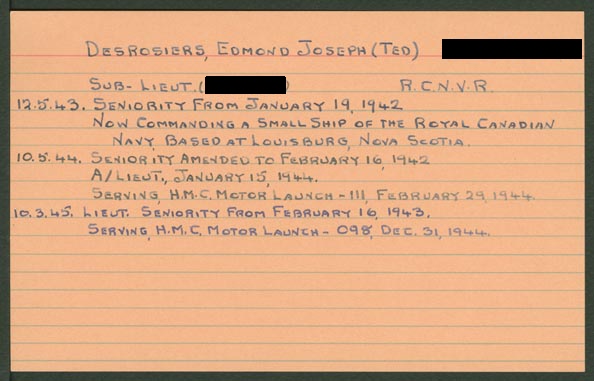 DESROSIERS, EDMOND JOSEPH (TED)
SUB-LIEUT. ( ) R.C.N.V.R.
12.5.43. SENIORITY FROM JANUARY 19, 1942
NOW COMMANDING A SMALL SHIP OF THE ROYAL CANADIAN
NAVY, BASED AT LOUISBURG, NOVA SCOTIA.
10.5.44. SENIORITY AMENDED TO FEBRUARY 16, 1942
A/LIEUT., JANUARY 15, 1944.
SERVING, H.M.C. MOTOR LAUNCH - 111, FEBRUARY 29, 1944.
10.3.45. LIEUT. SENIORITY FROM FEBRUARY 16, 1943.
SERVING, H.M.C. MOTOR LAUNCH - 098, DEC. 31, 1944.